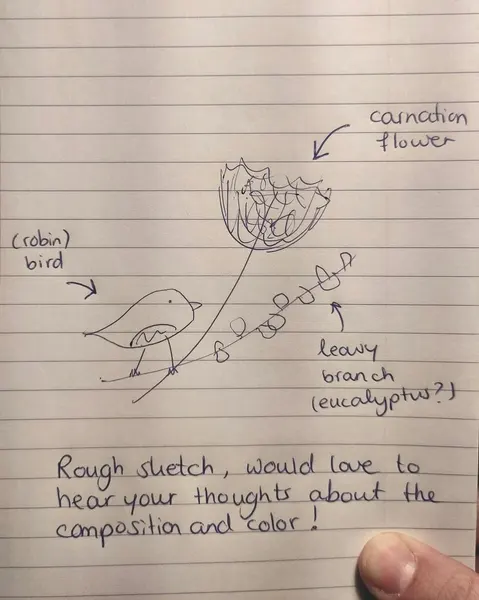 carnation
flower
(robin)
bird
leavy
branch
(eucalyptus?)
Rough sketch, would love to
hear your thoughts about the
composition and color!